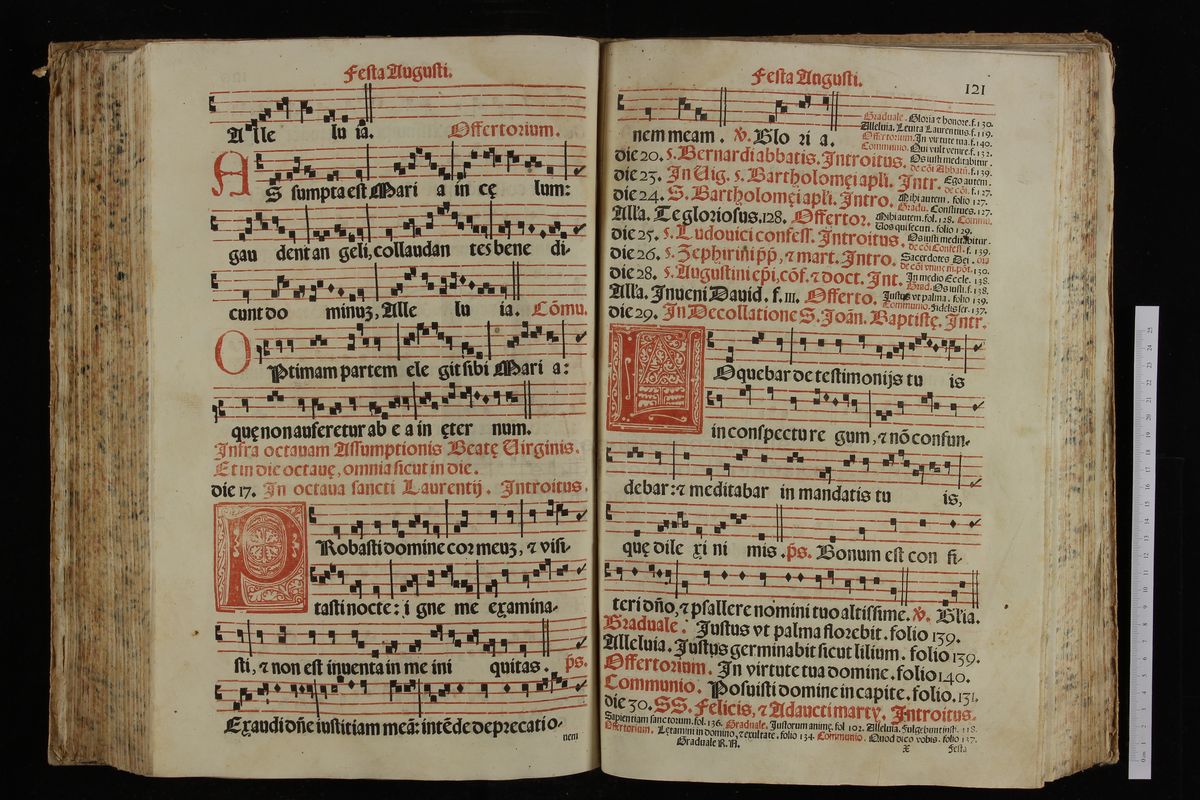 Festa Augusti.
Alle lu ia. Offertorium.
AS sumpta est Mari a in cę lum:
gau dent an geli, collaudan tes bene di-
cunt do minuʒ, Alle lu ia. Cõmu.
OPtimam partem ele git sibi Mari a:
quę non auferetur ab e a in ęter num.
Infra octauam Assumptionis Beatę Uirginis.
Et in die octauę, omnia sicut in die.
die 17. In octaua sancti Laurentij. Introitus.
PRobasti domine cor meuʒ, ⁊ visi-
tasti nocte: i gne me exami na-
sti, ⁊ non est inuenta in me ini quitas. p̃s.
Exaudi dñe iustitiam meã: intẽde deprecatio-
nem
Festa Angusti.
121
nem meam. ℣. Glo ri a.
Graduale. Gloria ⁊ honore. f. 130.
Alleluia. Leuita Laurentius. f. 119.
Offertorium. In virtute tua. f. 140.
Communio. Qui vult venire. f. 132.
die 20. s. Bernardi abbatis. Introitus. Os iusti meditabitur.
de cõi Abbatũ. f. 139.
die 23. In Uig. s. Bartholomęi apľi. Intr. Ego autem.
de cõi. f. 127.
die 24. S. Bartholomęi apľi. Intro. Mihi autem. folio 127.
Gradu. Constitues. 127.
Alľa. Te gloriosus. 128. Offertor. Mihi autem. fol. 128. Commu.
Uos qui secuti. folio 129.
die 25. s. Ludouici confess. Introitus. Os iusti meditabitur.
de cõi Confess. f. 139.
die 26. s. Zephirini p̃p, ⁊ mart. Intro. Sacerdotes Dei.
de cõi vnius m. põt. 130.
die 28. s. Augustini ep̃i, cõf. ⁊ doct. Int. In medio Eccle. 138.
Grad. Os iusti. f. 138.
Alľa. Inueni Dauid. f. 111. Offerto. Iustus vt palma. folio 139.
Communio. Fidelis ser. 137.
die 29. In Decollatione S. Joãn. Baptistę. Intr.
LOquebar de testimonijs tu is
in conspectu re gum, ⁊ nõ confun-
debar: ⁊ meditabar in mandatis tu is,
quę dile xi ni mis. p̃s. Bonum est con fi-
teri dño, ⁊ psallere nomini tuo altissime. ℣. Gľia.
Graduale. Justus vt palma florebit. folio 139.
Alleluia. Justus germinabit sicut lilium. folio 139.
Offertorium. In virtute tua domine. folio 140.
Communio. Posuisti domine in capite. folio. 131.
die 30. SS. Felicis, ⁊ Adaucti marty. Introitus.
Sapientiam sanctorum. fol. 136. Graduale. Justorum animę. fol 102. Alleluia. Fulgebunt iusti. 118.
Offertorium. Lętamini in domino, ⁊ exultate. folio 134. Communio. Quod dico vobis. folio 137.
Graduale R. N.
x
Festa